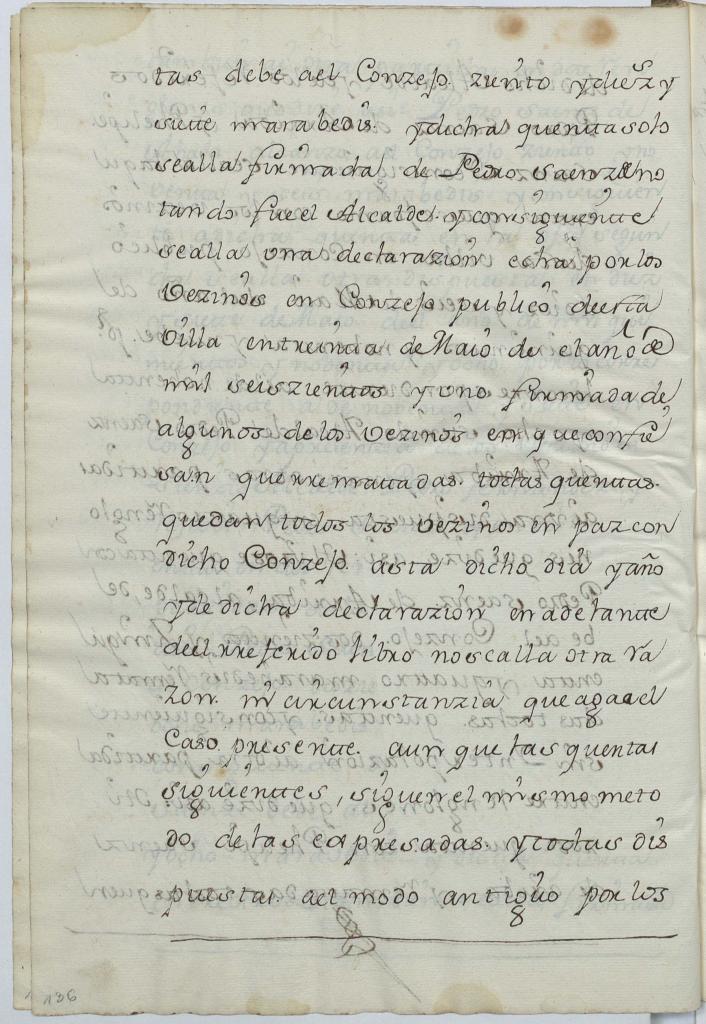 tas debe ael Conzejo ziento ydiesz y
siette marabedis. ydicha quentta solo
sealla firmada de Pedro Saenz no
tando fue el Alcalde. y consiguientte
sealla una declarazion echa por los
Vezinos en Conzejo publico deesta
Villa en treintta de Maio de el año de
mil seiszienttos y uno firmada de
algunos de los Vezinos en que confie
san querremattadas. todas quenttas.
quedan todos los Vezinos en paz con
dicho Conzejo. asta dicho dia y año
y de dicha declarazion en adelantte
deel rreferido libro no sealla otra Ra
zon. ni circunstanzia que aga ael
Caso presentte. aun que las quentas
siguienttes, siguen el mismo meto
do de las expresadas. y todas dis
puestas. ael modo antiguo por los
136